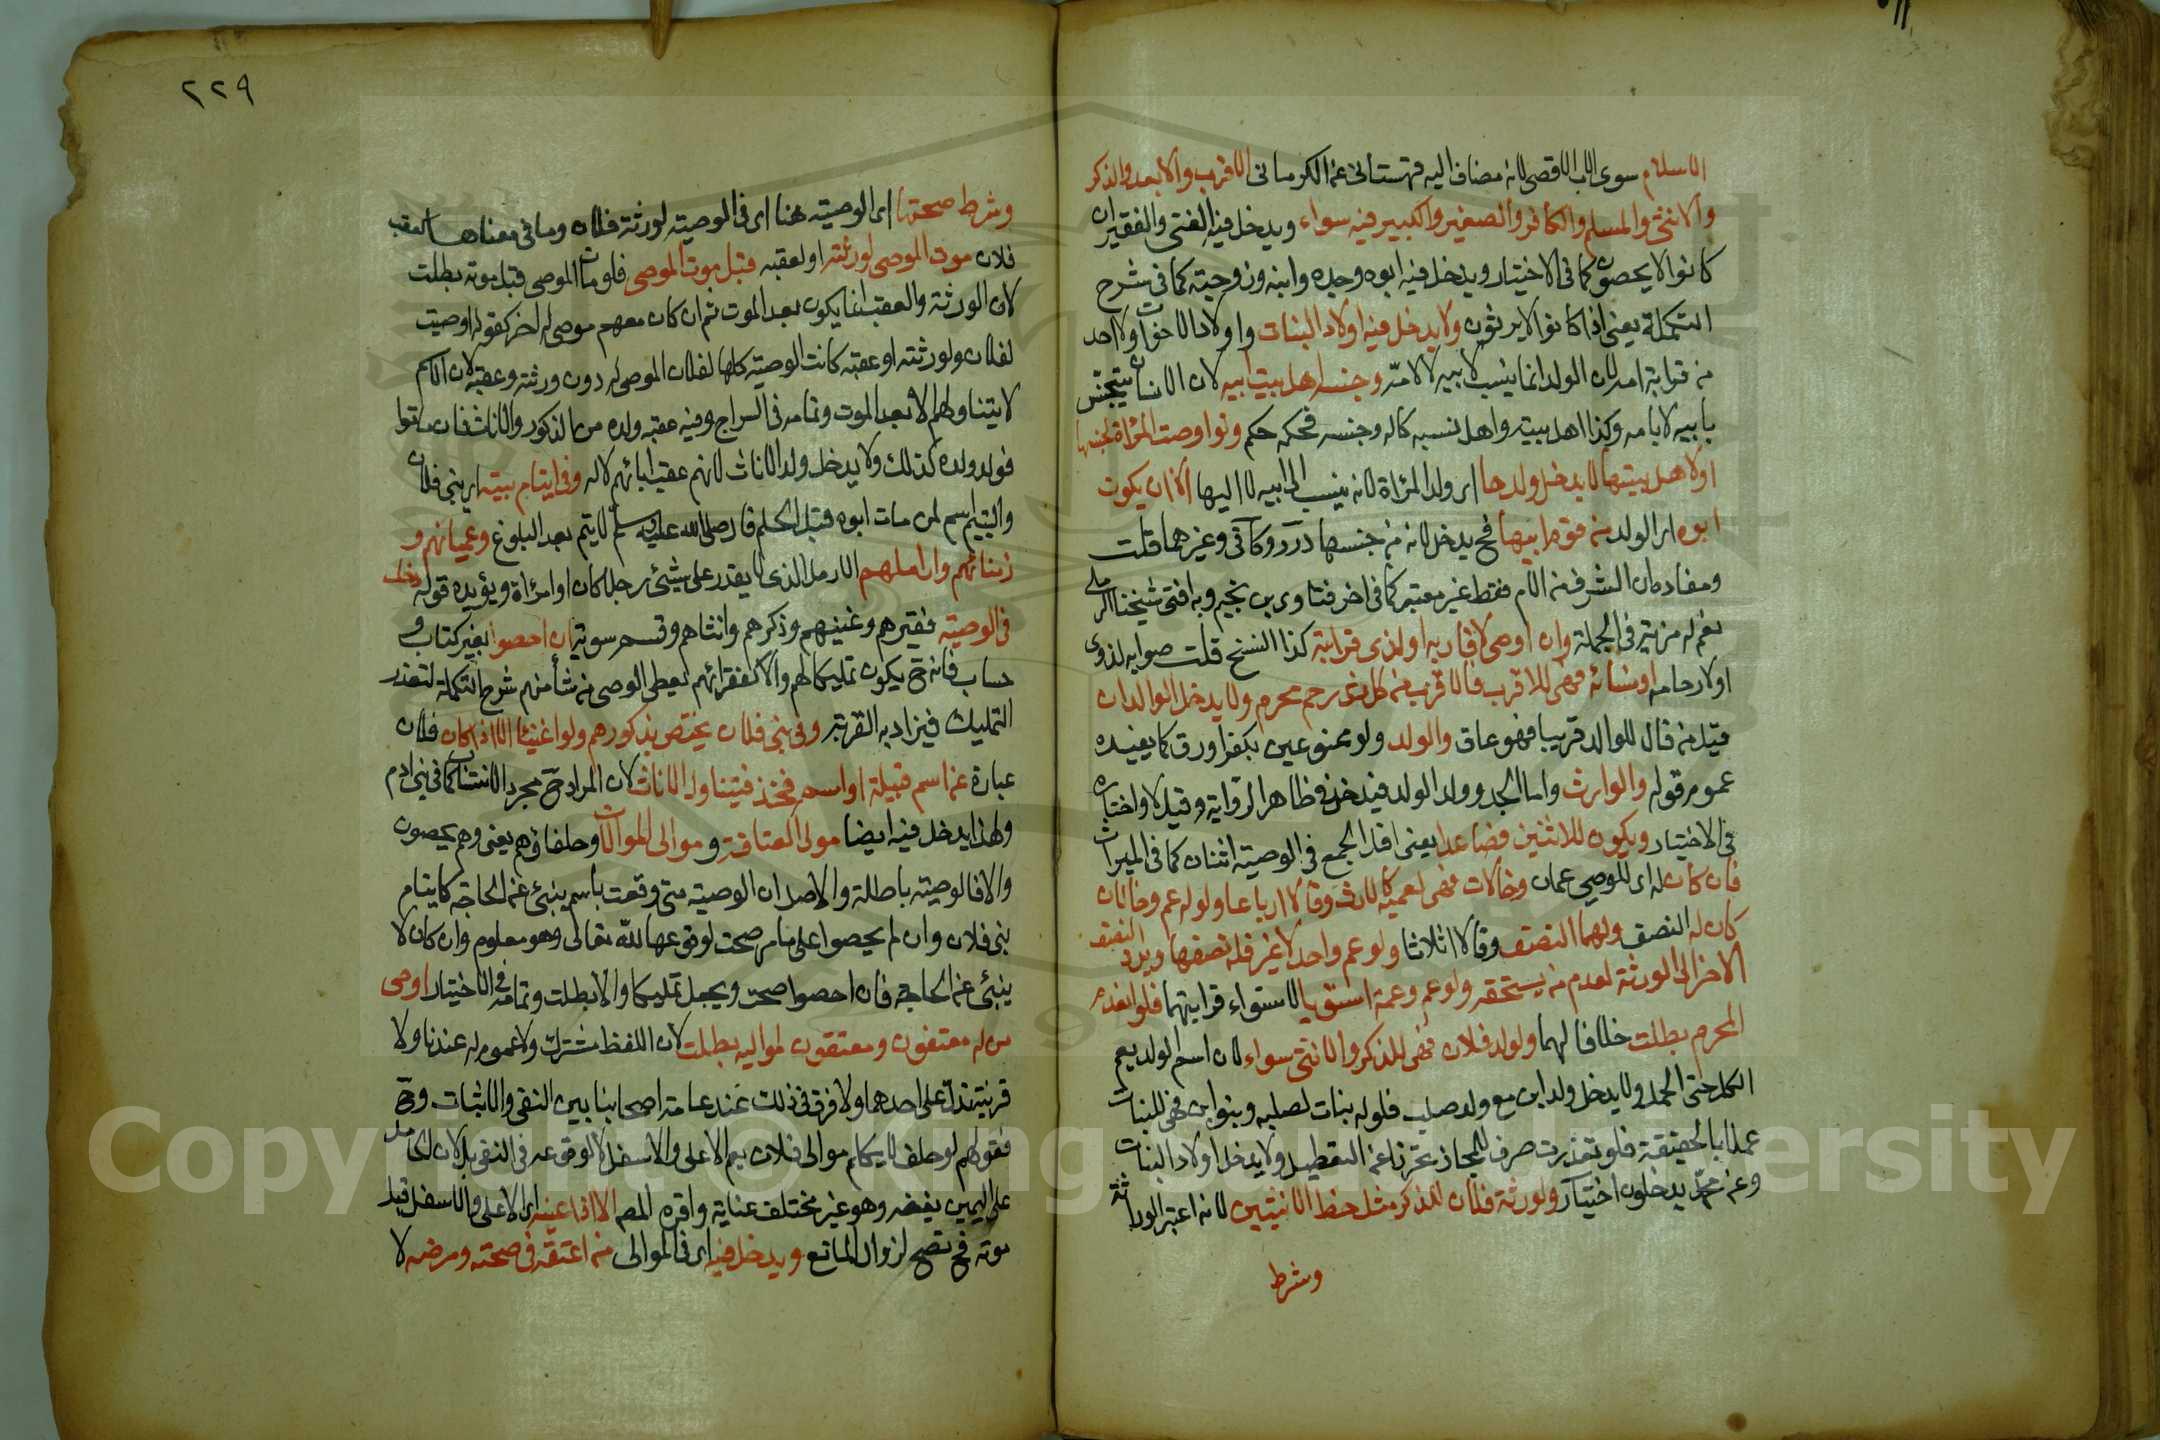 الاسلام سوى الاب الاقصى لانه مضاف اليه قهستاني عن الكرماني الاقرب والابعد والذكر
والانثى والمسلم والكافر والصغير والكبير فيه سواء ويدخل فيه الغنى والفقير ان
كانوا لا يحصون كما في الاختيار ويدخل فيه ابوه وجده وابنه وزوجته كما في شرح
التكملة يعني اذا كانوا لا يرثون ولا يدخل فيه اولاد البنات واولاد الاخوات ولا احد
من قرابة امه لان الولد انما ينسب لابيه لا لامه وجنسه اهل بيت ابيه لان الانسان يتجنس
بابيه لا بامه وكذا اهل بيته واهل نسبه كاله وجنسه فحكمه حكمه ولو اوصت المرأة لجنسها
او لاهل بيتها لا يدخل ولدها اى ولد المرأة لانه ينسب الى ابيه لا اليها الا ان يكون
ابوه اى الولد من قوم ابيها فح يدخل لانه من جنسها درر وكافي وغيرهما قلت
ومفاده ان الشرف من الام فقط غير معتبر كما في اخر فتاوى بن نجيم وبه افتى شيخنا الرملي
نعم له مزية في الجملة وان اوصى لاقاربه او لذى قرابته كذا النسخ قلت صوابه لذوى
او لارحامه او نسائه فهى للاقرب فالاقرب من كل ذى رحم محرم ولا يدخل الوالدان
قيل من قال للوالد قريبا فهو عاق والولد ولو ممنوعين بكفر او رق كما يفيده
عموم قوله والوارث واما الجد وولد الولد فيدخل في ظاهر الرواية وقيل لا واختاره
في الاختيار ويكون للاثنين فصاعدا يعني اقل الجمع في الوصية اثنان كما في الميراث
فان كان له اى للموصى عمان وخالان فهى لعميه كالارث وقالا ارباعا ولو له عم وخالان
كان له النصف ولهما النصف وقالا اثلاثا ولو عم واحد لا غير فله نصفها ويرد النصف
الاخر الى الورثة لعدم من يستحقه ولو عم وعمة استويا لاستواء قرابتهما فلو انعدم
المحرم بطلت خلافا لهما ولولد فلان فهى للذكر والانثى سواء لان اسم الولد يعم
الكل حتى الحمل ولا يدخل ولد ابن مع ولد صلب فلو له بنات لصلبه وبنو ابن فهى للبنات
عملا بالحقيقة فلو تعذرت صرف للمجاز تحرزا عن التعطيل ولا يدخل اولاد البنات
وعن محمد يدخلون اختيار ولورثة فلان للذكر مثل حظ الانثيين لانه اعتبر الوراثة
وشرط
٢٢٩
وشرط صحتها اى الوصية هنا اى في الوصية لورثة فلان وما في معناها كعقب
فلان موت الموصى لورثته او لعقبه قبل موت الموصى فلو مات الموصى قبل موته بطلت
لان الورثة والعقب انما يكون بعد الموت ثم ان كان معهم موصى له اخر كقوله اوصيت
لفلان ولورثته او عقبه كانت الوصية كلها لفلان الموصى له دون ورثته وعقبه لان الاسم
لا يتناولهم الا بعد الموت وتمامه في السراج وفيه عقبه ولده من الذكور والاناث فان ماتوا
فولد ولده كذلك ولا يدخل ولد الاناث لانهم عقب ابائهم لا له وفي ايتام بيته اى بنى فلان
واليتيم اسم لمن مات ابوه قبل الحلم قال صلى الله عليه وسلم لا يتم بعد البلوغ وعميانهم و
زمنائهم واراملهم الارمل الذى لا يقدر على شيئ رجلا كان او امرأة ويؤيده قوله دخل
في الوصية فقيرهم وغنيهم وذكرهم وانثاهم وقسم سوية ان احصوا بغير كتاب و
حساب فانه ح يكون تمليكا لهم والا لفقرائهم يعطى الوصى من شأ منهم شرح التكملة لتعذر
التمليك فيراد به القربة وفي بنى فلان يختص بذكورهم ولو اغنياء الا اذا كان فلان
عبارة عن اسم قبيلة او اسم فخذ فيتناول الاناث لان المراد ح مجرد الانتساب كما في بنى ادم
ولهذا يدخل فيه ايضا مولى العتاقة و موالى الموالات وحلفاؤهم يعنى وهم يحصون
والا فالوصية باطلة والاصل ان الوصية متى وقعت باسم ينبئ عن الحاجة كايتام
بنى فلان وان لم يحصوا على ما مر صحت لوقوعها لله تعالى وهو معلوم وان كان لا
ينبئ عن الحاجة فان احصوا صحت ويجعل تمليكا والا بطلت وتمامه في الاختيار اوصى
من له معتقون ومعتقون لمواليه بطلت لان اللفظ مشترك ولا عموم له عندنا ولا
قرينة تدل على احدهما ولا فرق في ذلك عند عامة اصحابنا بين النفى والاثبات وح
فقولهم لو حلف لا يكلم موالى فلان يعم الاعلى والاسفل لا لوقوعه في النفى بل لان الحامل
على اليمين بغضه وهو غير مختلف عناية واقره المصم الا اذا عينه اى الاعلى والاسفل قبل
موته فح تصح لزوال المانع ويدخل فيه اى في الموالى من اعتقه في صحته ومرضه لا
Copyright © King Saud University